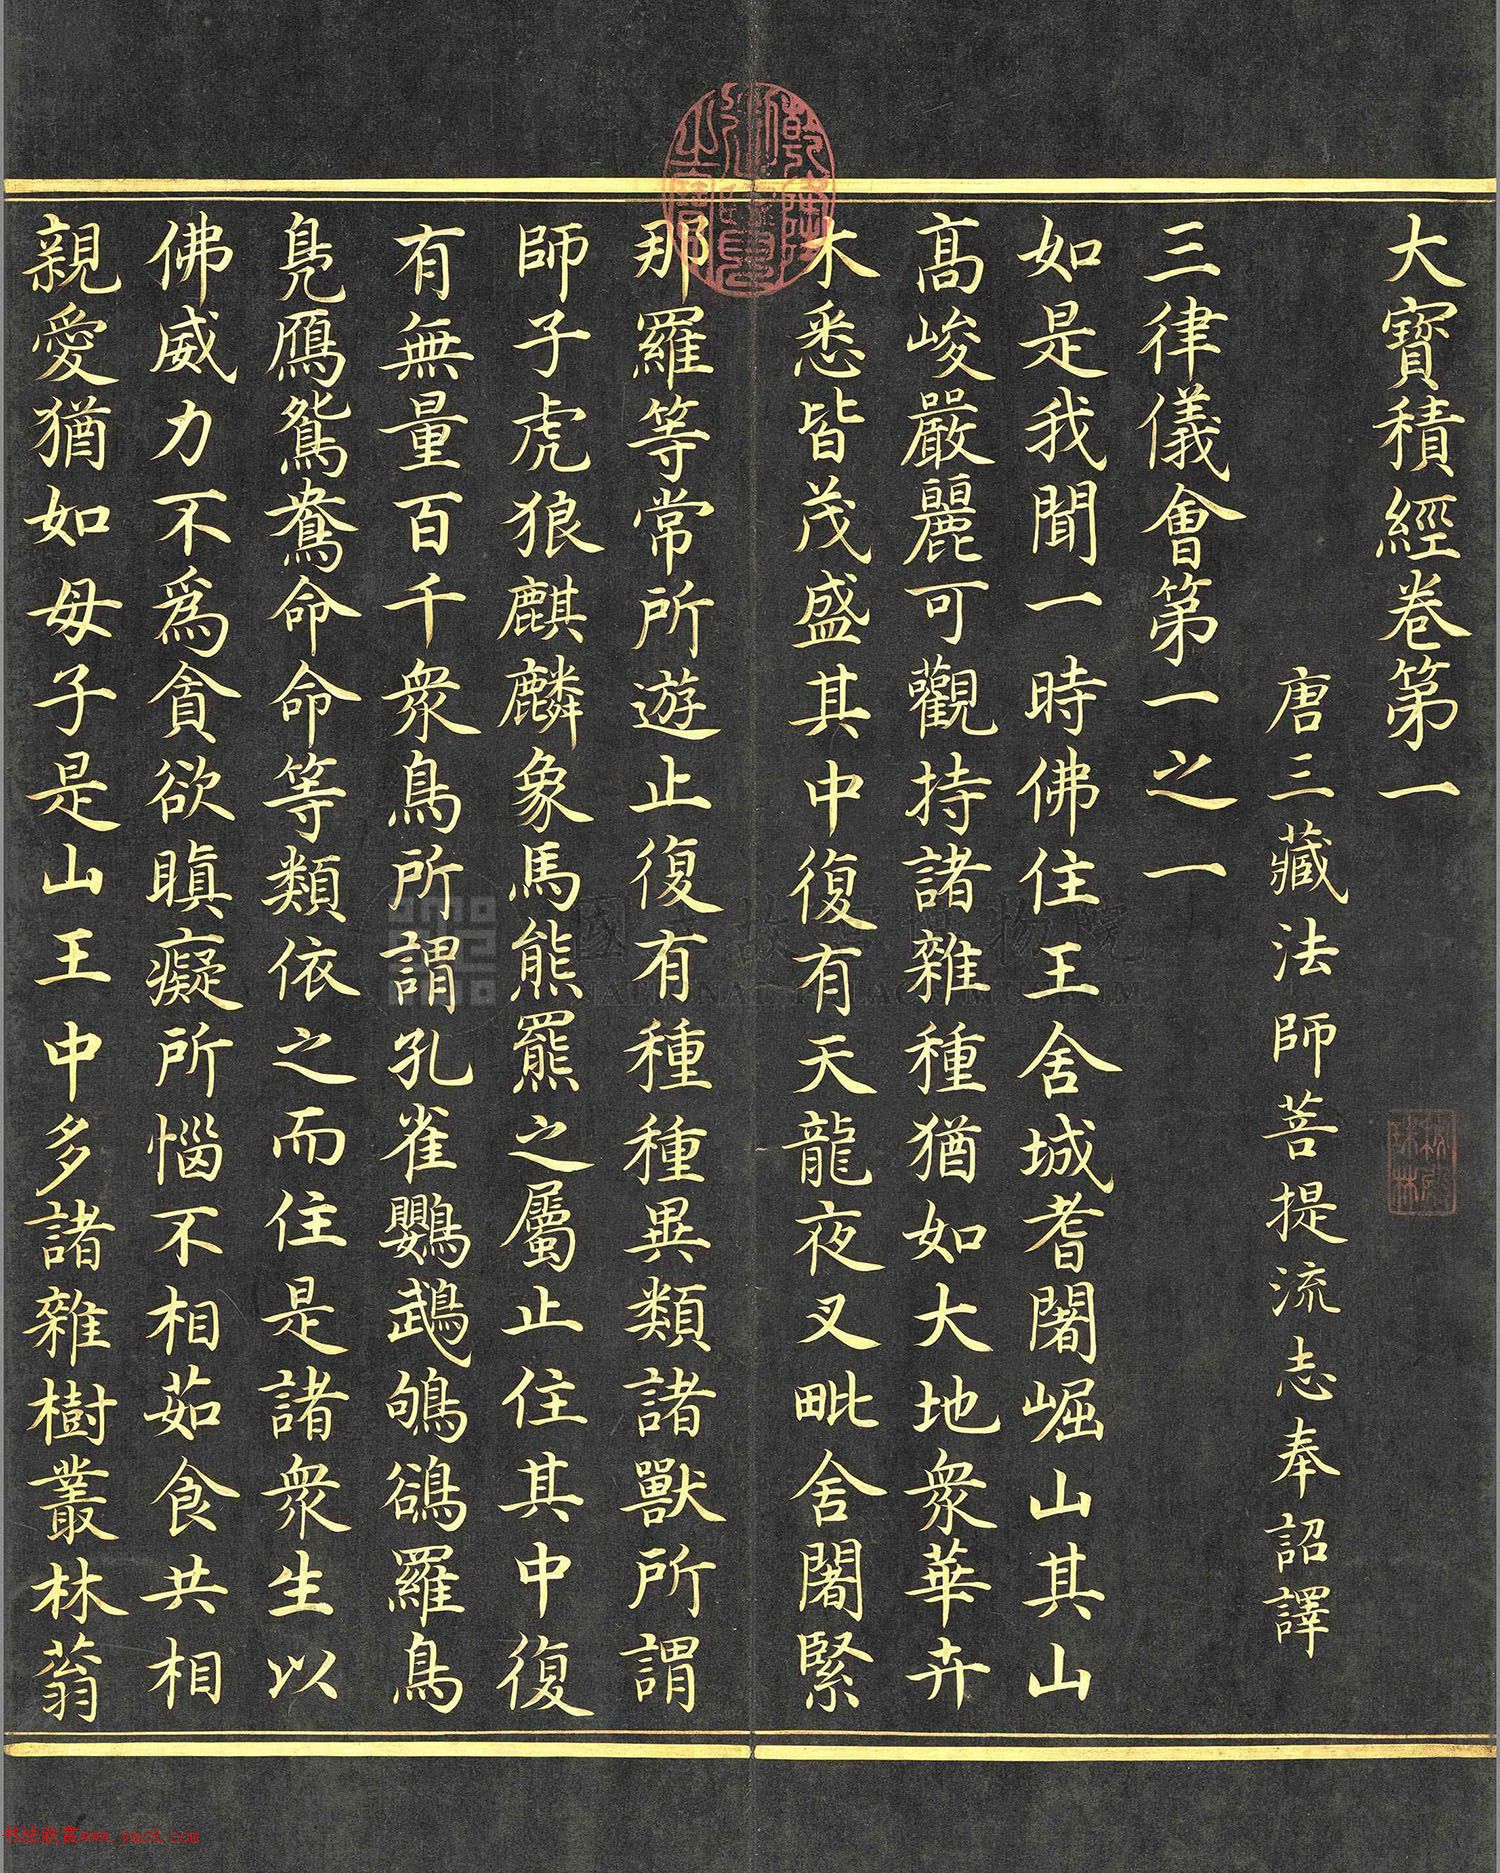 大寶積經卷第一
唐三藏法師菩提流志奉詔譯
三律儀會第一之一
如是我聞一時佛住王舍城耆闍崛山其山
高峻嚴麗可觀持諸雜種猶如大地衆華卉
木悉皆茂盛其中復有天龍夜叉毗舍闍緊
那羅等常所遊止復有種種異類諸獸所謂
師子虎狼麒麟象馬熊羆之屬止住其中復
有無量百千衆鳥所謂孔雀鸚鵡鴝鵒羅鳥
鳧鴈鴛鴦命命等類依之而住是諸衆生以
佛威力不為貪欲瞋癡所惱不相茹食共相
親愛猶如母子是山王中多諸雜樹叢林蓊
國立故宮博物院
NATIONAL PALACE MUSEUM
书法欣赏www.yac8.com